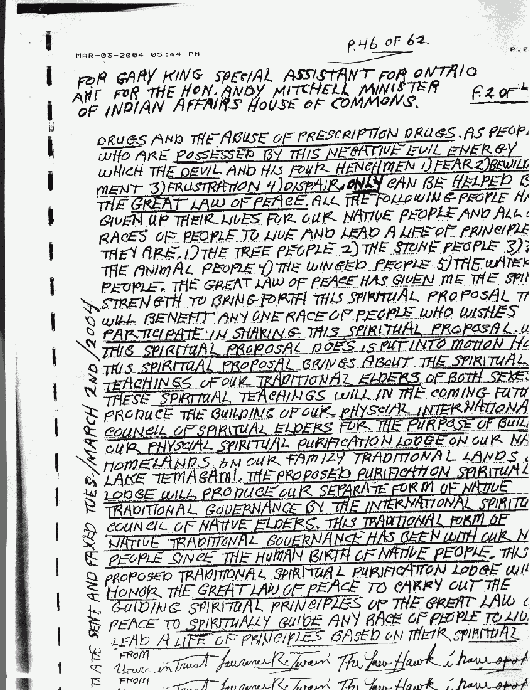 P.46 OF 62.
MAR-03-2004 05:44 PM
P.2
FOR GARY KING SPECIAL ASSISTANT FOR ONTARIO
FOR THE HON. ANDY MITCHELL MINISTER
OF INDIAN AFFAIRS HOUSE OF COMMONS.
P.2 OF
DRUGS AND THE ABUSE OF PRESCRIPTION DRUGS. AS PEOP
WHO ARE POSSESSED BY THIS NEGATIVE EVIL ENERGY
WHICH THE DEVIL AND HIS FOUR HENCHMEN 1) FEAR 2) BEWILD
MENT 3) FRUSTRATION 4) DISPAIR, ONLY CAN BE HELPED B
THE GREAT LAW OF PEACE. ALL THE FOLLOWING PEOPLE HA
GIVEN UP THEIR LIVES FOR OUR NATIVE PEOPLE AND ALL
RACES OF PEOPLE TO LIVE AND LEAD A LIFE OF PRINCIPLE
THEY ARE. 1) THE TREE PEOPLE 2) THE STONE PEOPLE 3)
THE ANIMAL PEOPLE 4) THE WINGED PEOPLE 5) THE WATER
PEOPLE. THE GREAT LAW OF PEACE HAS GIVEN ME THE SPI
STRENGTH TO BRING FORTH THIS SPIRITUAL PROPOSAL T
WILL BENEFIT ANY ONE RACE OF PEOPLE WHO WISHES
PARTICIPATE IN SHARING THIS SPIRITUAL PROPOSAL.
THIS SPIRITUAL PROPOSAL DOES IS PUT INTO MOTION HO
THIS SPIRITUAL PROPOSAL BRINGS ABOUT THE SPIRITUAL
TEACHINGS OF OUR TRADITIONAL ELDERS OF BOTH SEXE
THESE SPIRITUAL TEACHINGS WILL IN THE COMING FUTU
PRODUCE THE BUILDING OF OUR PHYSCIAL INTERNATIONA
COUNCIL OF SPIRITUAL ELDERS FOR THE PURPOSE OF BUIL
OUR PHYSCIAL SPIRITUAL PURIFICATION LODGE ON OUR N
HOMELANDS. ON OUR FAMILY TRADITIONAL LANDS.
LAKE TEMAGAMI. THE PROPOSED PURIFICATION SPIRITUAL
LODGE WILL PRODUCE OUR SEPARATE FORM OF NATIVE
TRADITIONAL GOVERNANCE BY THE INTERNATIONAL SPIRITU
COUNCIL OF NATIVE ELDERS. THIS TRADITIONAL FORM OF
NATIVE TRADITIONAL GOVERNANCE HAS BEEN WITH OUR N
PEOPLE SINCE THE HUMAN BIRTH OF NATIVE PEOPLE. THIS
PROPOSED TRADITIONAL SPIRITUAL PURIFICATION LODGE WI
HONOR THE GREAT LAW OF PEACE TO CARRY OUT THE
GUIDING SPIRITUAL PRINCIPLES OF THE GREAT LAW O
PEACE TO SPIRITUALLY GUIDE ANY RACE OF PEOPLE TO LIV
LEAD A LIFE OF PRINCIPLES BASED ON THEIR SPIRITUAL
FROM
in Trust The Law Hawk i have
FROM
DATE SENT AND FAXED TUES./MARCH 2ND/2004